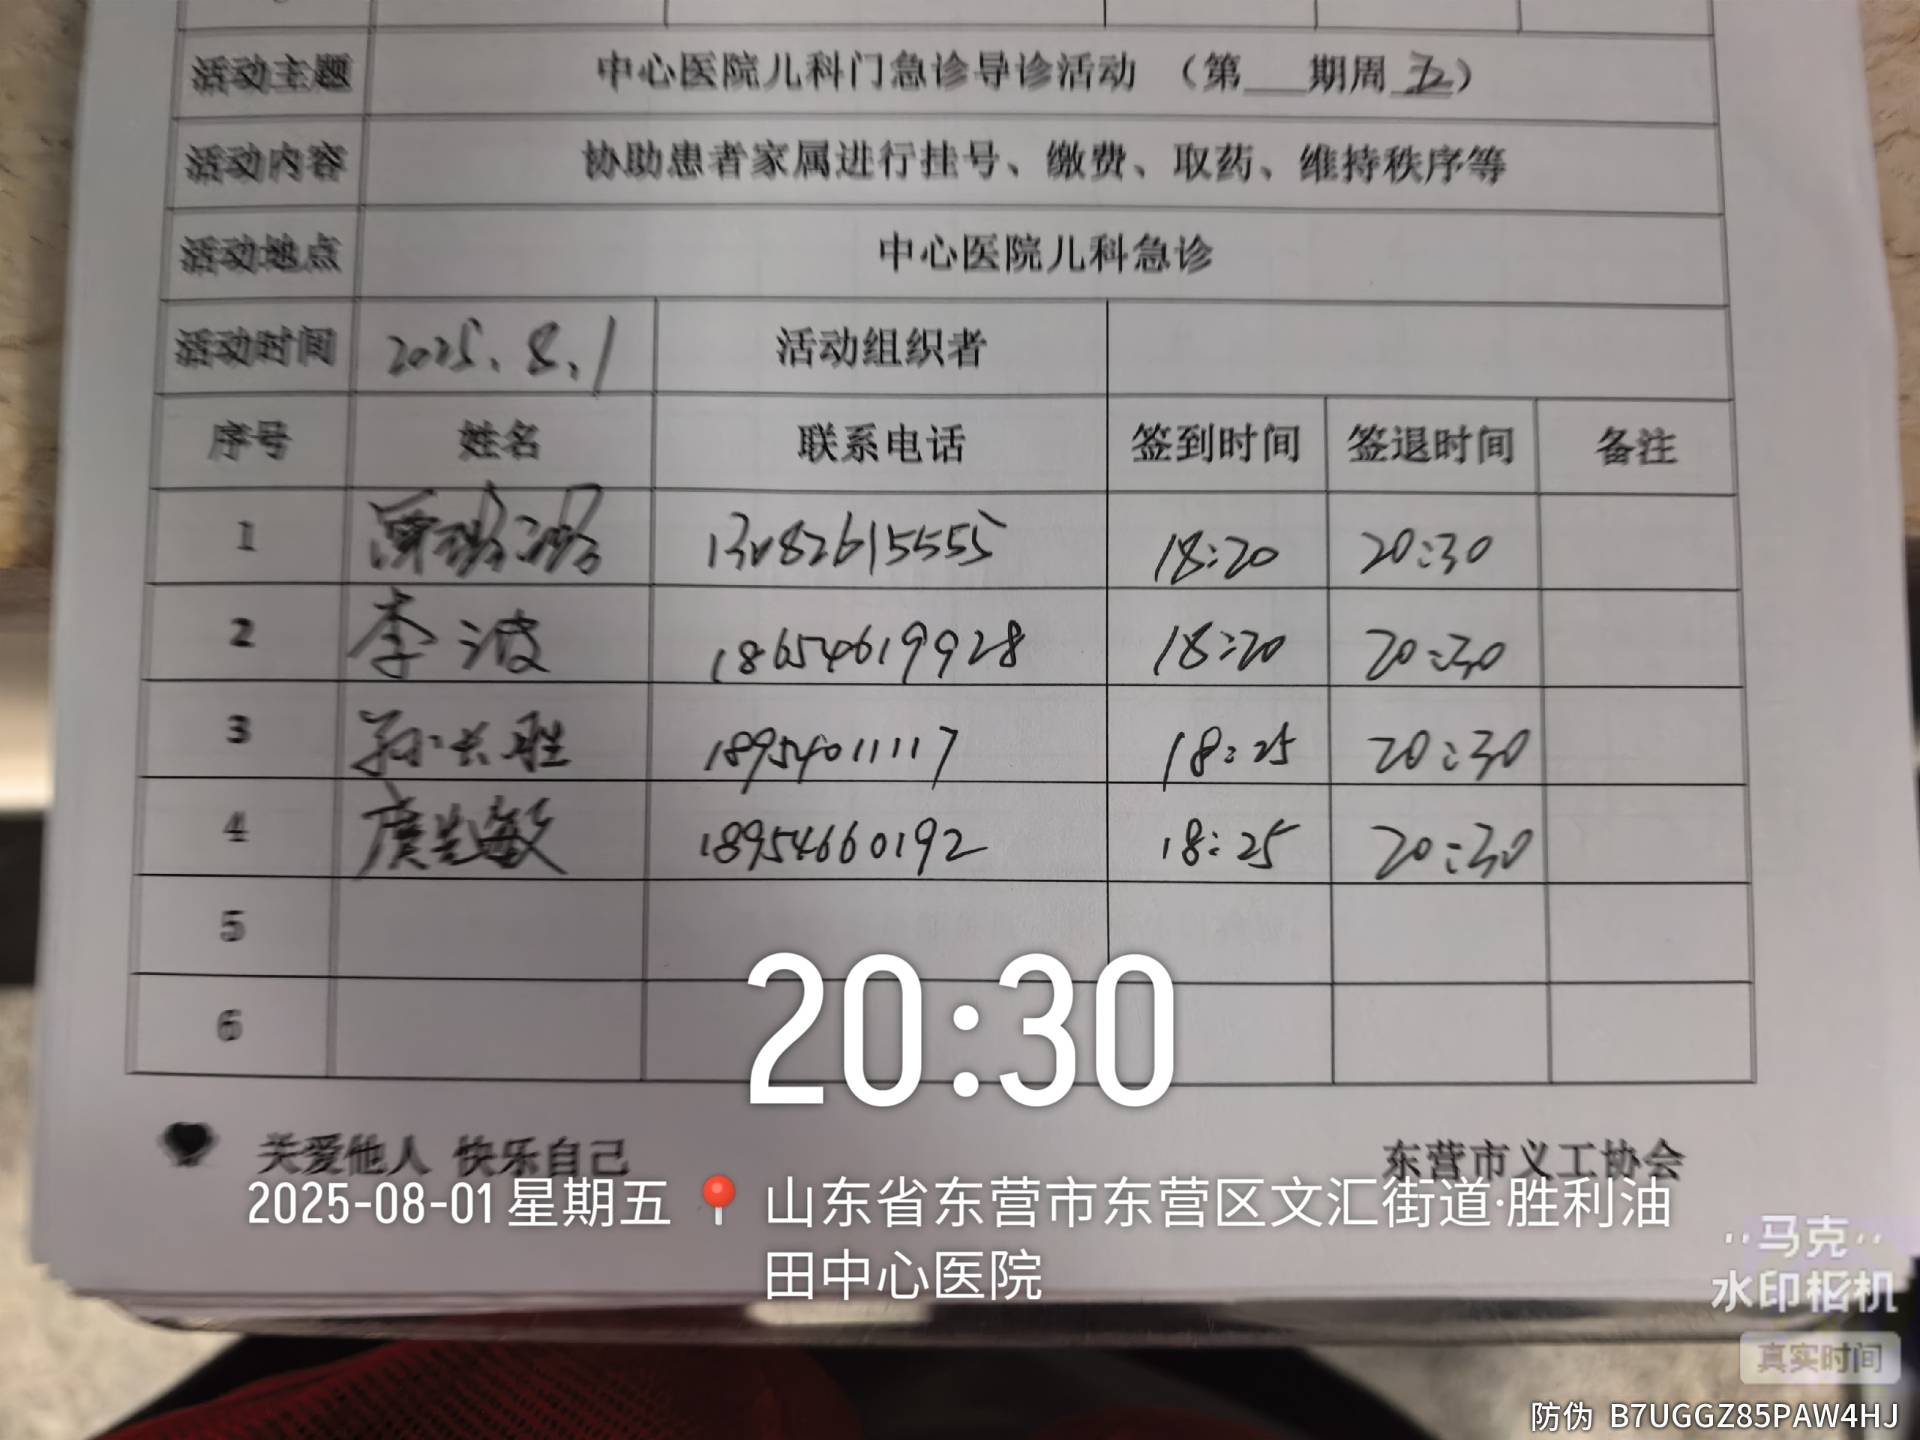 活动主题 中心医院儿科门急诊导诊活动 (第___期周五)
活动内容 协助患者家属进行挂号、缴费、取药、维持秩序等
活动地点 中心医院儿科急诊
活动时间 2025.8.1 活动组织者
序号 姓名 联系电话 签到时间 签退时间 备注
1 18:20 20:30
2 李波 18654619928 18:20 20:30
3 孙长胜 18954011117 18:25 20:30
4 18954660192 18:25 20:30
5
6
20:30
关爱他人 快乐自己 东营市义工协会
2025-08-01 星期五 山东省东营市东营区文汇街道·胜利油
田中心医院
马克
水印相机
真实时间
防伪 B7UGGZ85PAW4HJ